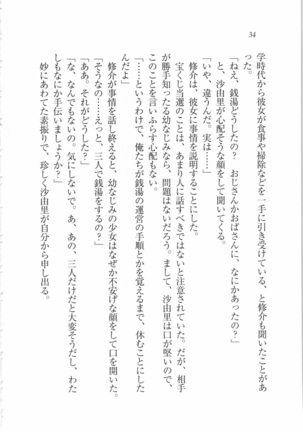 34
学時代から彼女が食事や掃除などを一手に引き受けている、と修介も聞いたことがあ
った。
「ねえ、銭湯どうしたの？　おじさんかおばさんに、なにかあったの？」
と、沙由里が心配そうな顔をして聞いてくる。
「いや、違うんだ。実は……」
修介は、彼女に事情を説明することにした。
宝くじ当選のことは、あまり人に話すべきではないと注意されていた。だが、相手
が勝手知ったる幼なじみなら、問題はないだろう。まして、沙由里は口が堅いので、
このことを言いふらす心配もない。
「……というわけで、俺たちが銭湯の運営の手順とかを覚えるまで、休むことにした
んだよ」
修介が事情を話し終えると、幼なじみの少女はなぜか不安げな顔をして口を開いた。
「そうなの……えっと、三人で銭湯をするの？」
「ああ。それがどうした？」
「な、なんでもないの。気にしないで。あ、あの、三人だけだと大変そうだし、わた
しもなにか手伝いましょうか？」
妙にあわてた素振りで、珍しく沙由里が自分から申し出る。